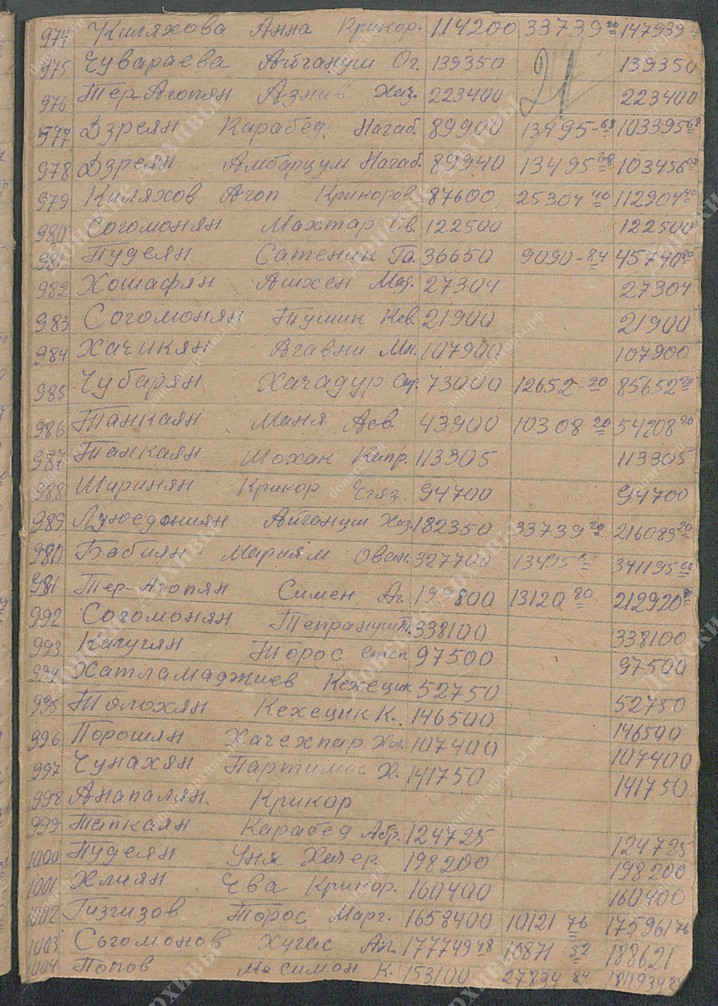 974 Киляхова Анна Крикор. 114200 33739 20 147939 20
975 Чувараева Айгануш Ог. 139350 139350
976 Тер-Агопян Азнив Хач. 223400 223400
977 Дзреян Карабед Нагаб. 89900 13495-68 103395 68
978 Дзреян Амбарцум Нагаб. 89940 13495 68 103456 68
979 Киляхов Агоп Крикоров 87600 25304 40 112904 40
980 Согомонян Махтар 122500 122500
981 Пуделян Сатеник Га. 36650 9090-84 45740 80
982 Хошафян Ашхен Мар. 27304 27304
983 Согомонян Тушик Кев. 21900 21900
984 Хачикян Агавни Мк. 107900 107900
985 Чубарян Хачадур Сар. 73000 12652-20 85652 20
986 Танкаян Маня Асв. 43900 10308 20 54208 20
987 Танкаян Мохак Капр. 113305 113305
988 Ширинян Крикор Егяз. 94700 94700
989 Айгануш Хаз. 182350 33739 20 216089 20
980 Бабиян Мариям Ован. 327700 13495 68 341195 68
981 Тер-Агопян Симен Аг. 199800 13120 80 212920 80
992 Согомонян Тепрануш 338100 338100
993 Капугян Торос Степ. 97500 97500
994 Хатламаджиев Кехецик 52750 52750
995 Толохян Кехецик К. 146500 146500
996 Порошян Хачехпар Хач. 107400 107400
997 Чунахян Партимос Х. 141750 141750
998 Анапалян. Крикор
999 Тапкаян Карабед Абр. 124725 124725
1000 Пуделян Уня Хачер. 198200 198200
1001 Хлиян Ева Крикор. 160400 160400
1002 Гизгизов Торос Март. 1658400 10121 76 175961 76
1003 Согомонов Хугас Ал. 177749 48 10871 52 188621
1004 Попов Ма симон К. 153100 27834 84
21